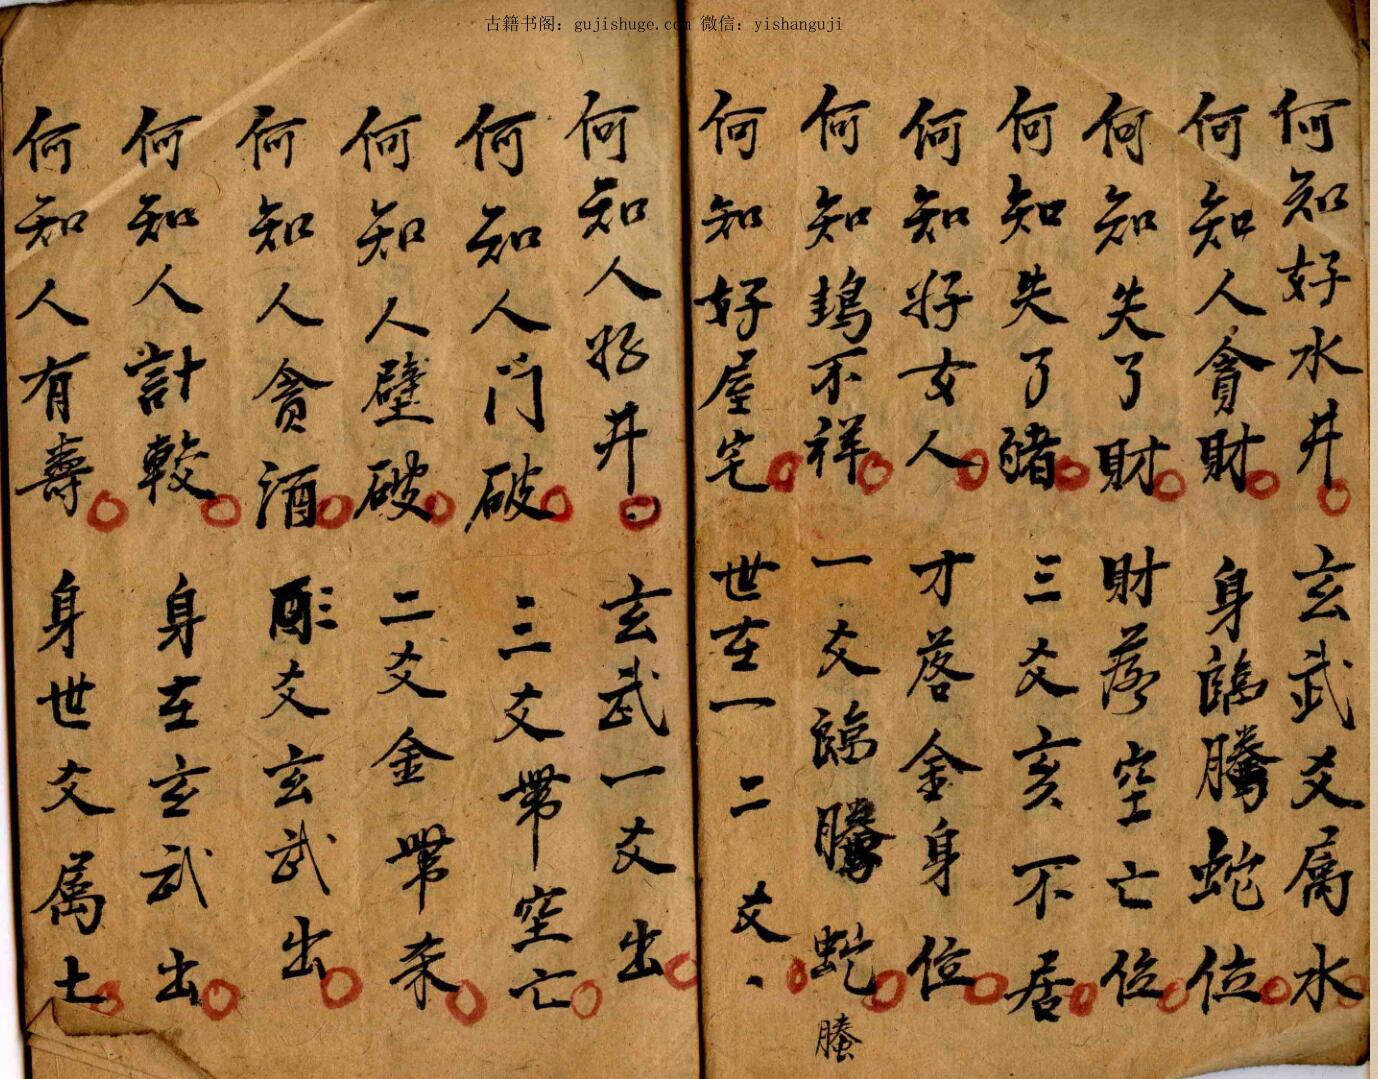 古籍书阁：gujishuge.com 微信：yishanguji
何知好水井 玄武爻属水
何知人貪財 身臨騰蛇位
何知失了財 財落空亡位
何知失了豬 三爻亥不居
何知好女人 才落金身位
何知鵄不祥 一爻臨騰蛇
螣
何知好屋宅 世在一二爻
何知人好井 玄武一爻出
何知人门破 三爻帶空亡
何知人壁破 二爻金帶杀
何知人贪酒 爻玄武出
何知人計較 身在玄武出
何知人有壽 身世爻属土